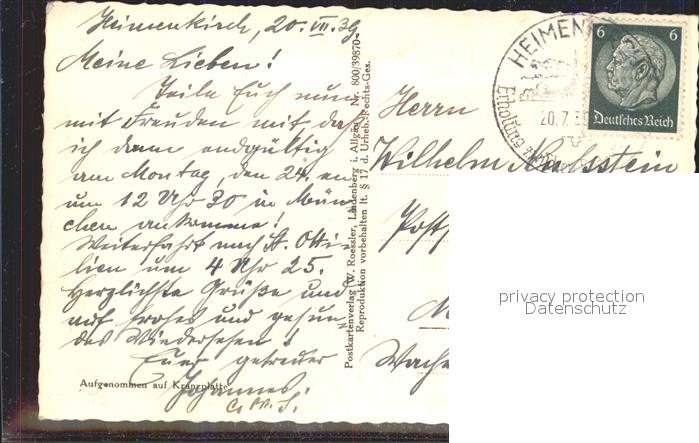 Heimenkirch, 20. VII. 39
Meine Lieben!
Teile Euch nun
mit Freuden mit daß
ich dann endgültig
am Montag, den 24. en
um 12 Uhr 30 in Mün
chen ankomme!
Weiterfahrt nach St. Otti-
lien um 4 Uhr 25.
Herzlichste Grüße und
auf frohes und gesun
des Wiedersehen!
Euer getreuer
Johannes.
Aufgenommen auf Kranzplatte
Postkartenverlag W. Roessler, Lindenberg i. Allgäu Nr. 800/39870
Reproduktion vorbehalten lt. § 17 d. Urheb. Rechts-Ges.
HEIMEN
20.7.39
6 6
Deutsches Reich
Herrn
Wilhelm
Post
privacy protection
Datenschutz